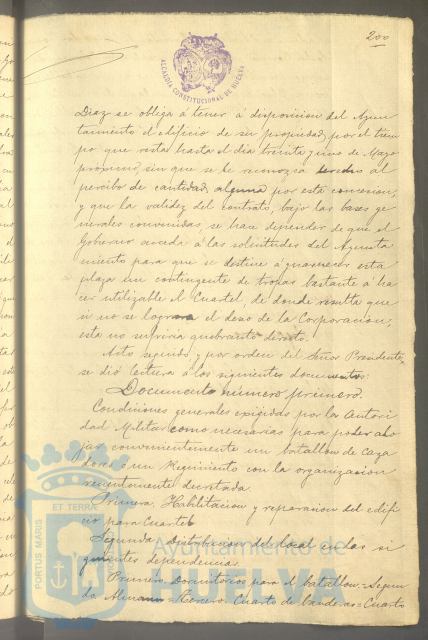 200
ALCALDÍA CONSTITUCIONAL DE HUELVA
Diaz se obliga a tener á disposicion del Ayun
tamiento el edificio de su propiedad, por el tiem
po que resta hasta el dia treinta y uno de Mayo
proximo, sin que se le reconozca derecho al
percibo de cantidad alguna por esta concesion,
y que la validez del contrato, bajo las bases ge
nerales convenidas, se hace depender de que el
Gobierno acceda á las solicitudes del Ayunta
miento para que se destine á guarnecer esta
plaza un contingente de tropas bastante á ha
cer utilizable el Cuartel, de donde resulta que
si no se lograra el deseo de la Corporacion,
esta no sufriria quebranto
Acto seguido, y por orden del Señor Presidente,
se dió lectura á los siguientes documentos:
Documento número primero.
Condiciones generales exigidas por la Autori
dad Militar como necesarias para poder alo
jar convenientemente un batallon de Caza
dores ó un Regimiento con la organizacion
recientemente decretada.
Primera, Habilitacion y reparacion del edifi
cio para Cuartel
Segunda, Distribucion del local en las si
guientes dependencias.
Primero Dormitorios para el batallon = Segun
do Almacen = Tercero Cuarto de banderas = Cuarto
PORTUS MARIS ET TERRÆ
Ayuntamiento de
HUELVA